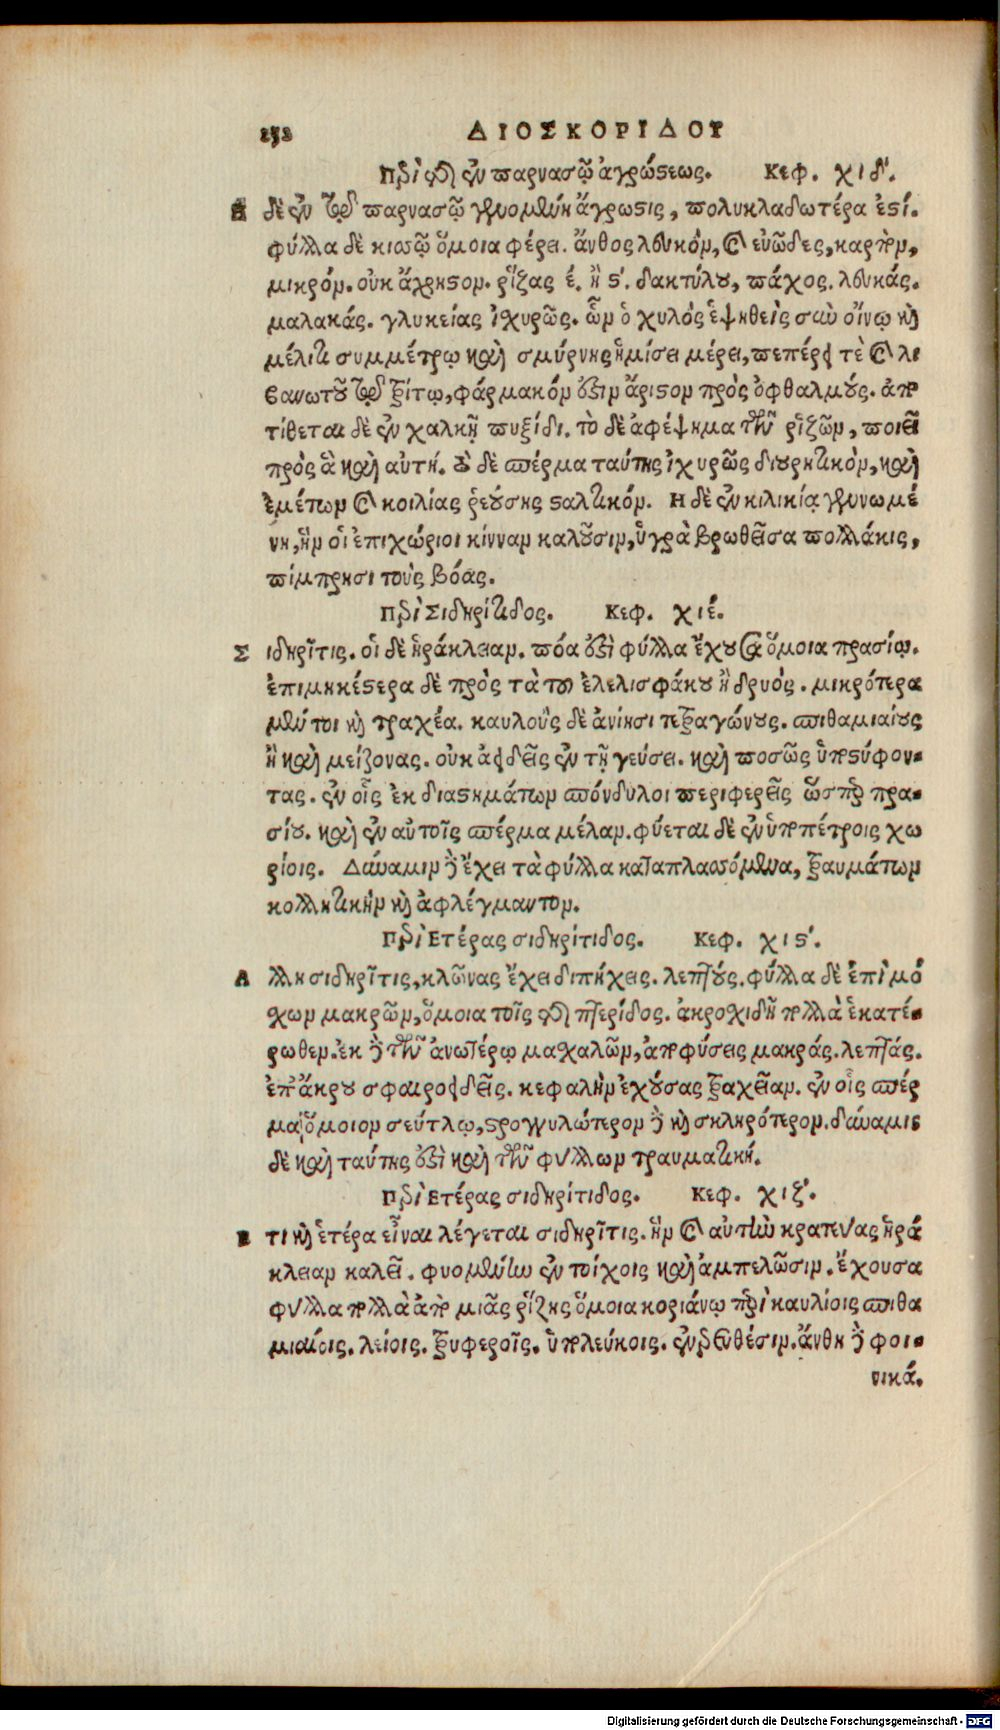 252 ΔΙΟΣΚΟΡΙΔΟΥ
Περὶ τῆς ἐν παρνασῷ ἀγρώστεως. Κεφ. χιδʹ.
Η δὲ ἐν τῷ παρνασῷ γενομένη ἄγρωστις, πολυκλαδωτέρα ἐστί.
φύλλα δὲ κισσῷ ὅμοια φέρει. ἄνθος λευκὸν, καὶ εὐῶδες, καρπὸν,
μικρόν. οὐκ ἄχρηστον. ῥίζας έ. ἢ ϛʹ. δακτύλου, πάχος. λευκάς.
μαλακάς. γλυκείας ἰχυρῶς. ὧν ὁ χυλὸς ἑψηθεὶς σὺν οἴνῳ καὶ
μέλιτι συμμέτρῳ καὶ σμύρνης ἡμίσει μέρει, πεπέρεως τὲ καὶ λι
βανωτοῦ τῷ τρίτῳ, φάρμακόν ἐστιν ἄριστον πρὸς ὀφθαλμούς. ἀπο
τίθεται δὲ ἐν χαλκῇ πυξίδι. τὸ δὲ ἀφέψημα τῶν ῥιζῶν, ποιεῖ
πρὸς ἃ καὶ αὐτή. τὸ δὲ σπέρμα ταύτης ἰχυρῶς διουρητικὸν, καὶ
ἐμέτων καὶ κοιλίας ῥεούσης σταλτικόν. Η δὲ ἐν κιλικίᾳ γενωμέ
νη, ἣν οἱ ἐπιχώριοι κίνναν καλοῦσιν, ὑγρὰ βρωθεῖσα πολλάκις,
πίμπρησι τοὺς βόας.
Περὶ Σιδηρίτιδος. Κεφ. χιέ.
Σιδηρῖτις. οἱ δὲ ἡράκλειαν. πόα ἐστὶ φύλλα ἔχουσα ὅμοια πρασίῳ.
ἐπιμηκέστερα δὲ πρὸς τὰ τοῦ ἐλελισφάκου ἢ δρυός. μικρότερα
μέν τοι καὶ τραχέα. καυλοὺς δὲ ἀνίησι τετραγώνους. σπιθαμιαίους
ἢ καὶ μείζονας. οὐκ ἀειδεῖς ἐν τῇ γεύσει. καὶ ποσῶς ὑποστύφον-
τας. ἐν οἷς ἐκ διαστημάτων σπόνδυλοι περιφερεῖς ὥσπερ πρα-
σίου. καὶ ἐν αὐτοῖς σπέρμα μέλαν. φύεται δὲ ἐν ὑποπέτροις χω
ρίοις. Δύναμιν δὲ ἔχει τὰ φύλλα καταπλασσόμενα, τραυμάτων
κολλητικὴν καὶ ἀφλέγμαντον.
Περὶ Ετέρας σιδηρίτιδος. Κεφ. χιϛʹ.
Αλλη σιδηρῖτις, κλῶνας ἔχει διπήχεις. λεπτούς. φύλλα δὲ ἐπὶ μό
χων μακρῶν, ὅμοια τοῖς τῆς πτερίδος. ἀκροχιδῆ πολλὰ ἑκατέ-
ρωθεν. ἐκ δὲ τῶν ἀνωτέρω μαχαλῶν, ἀποφύσεις μακράς. λεπτάς.
ἐπ' ἄκρου σφαιροειδεῖς. κεφαλὴν ἐχούσας τραχεῖαν. ἐν οἷς σπέρ
μα ὅμοιον σεύτλῳ, στρογγυλώτερον δὲ καὶ σκληρότερον. δύναμις
δὲ καὶ ταύτης ἐστὶ καὶ τῶν φύλλων τραυματική.
Περὶ Ετέρας σιδηρίτιδος. Κεφ. χιζʹ.
Ετι καὶ ἑτέρα εἶναι λέγεται σιδηρῖτις. ἣν καὶ αὐτὴν κρατεύας ἡρά
κλειαν καλεῖ. φυομένην ἐν τοίχοις καὶ ἀμπελῶσιν. ἔχουσα
φύλλα πολλὰ ἀπὸ μιᾶς ῥίζης ὅμοια κοριάνῳ περὶ καυλίοις σπιθα
μιαίοις. λείοις. τρυφεροῖς. ὑπολεύκοις. ἐνερευθέσιν. ἄνθη δὲ φοι-
νικά.
Digitalisierung gefördert durch die Deutsche Forschungsgemeinschaft - DFG